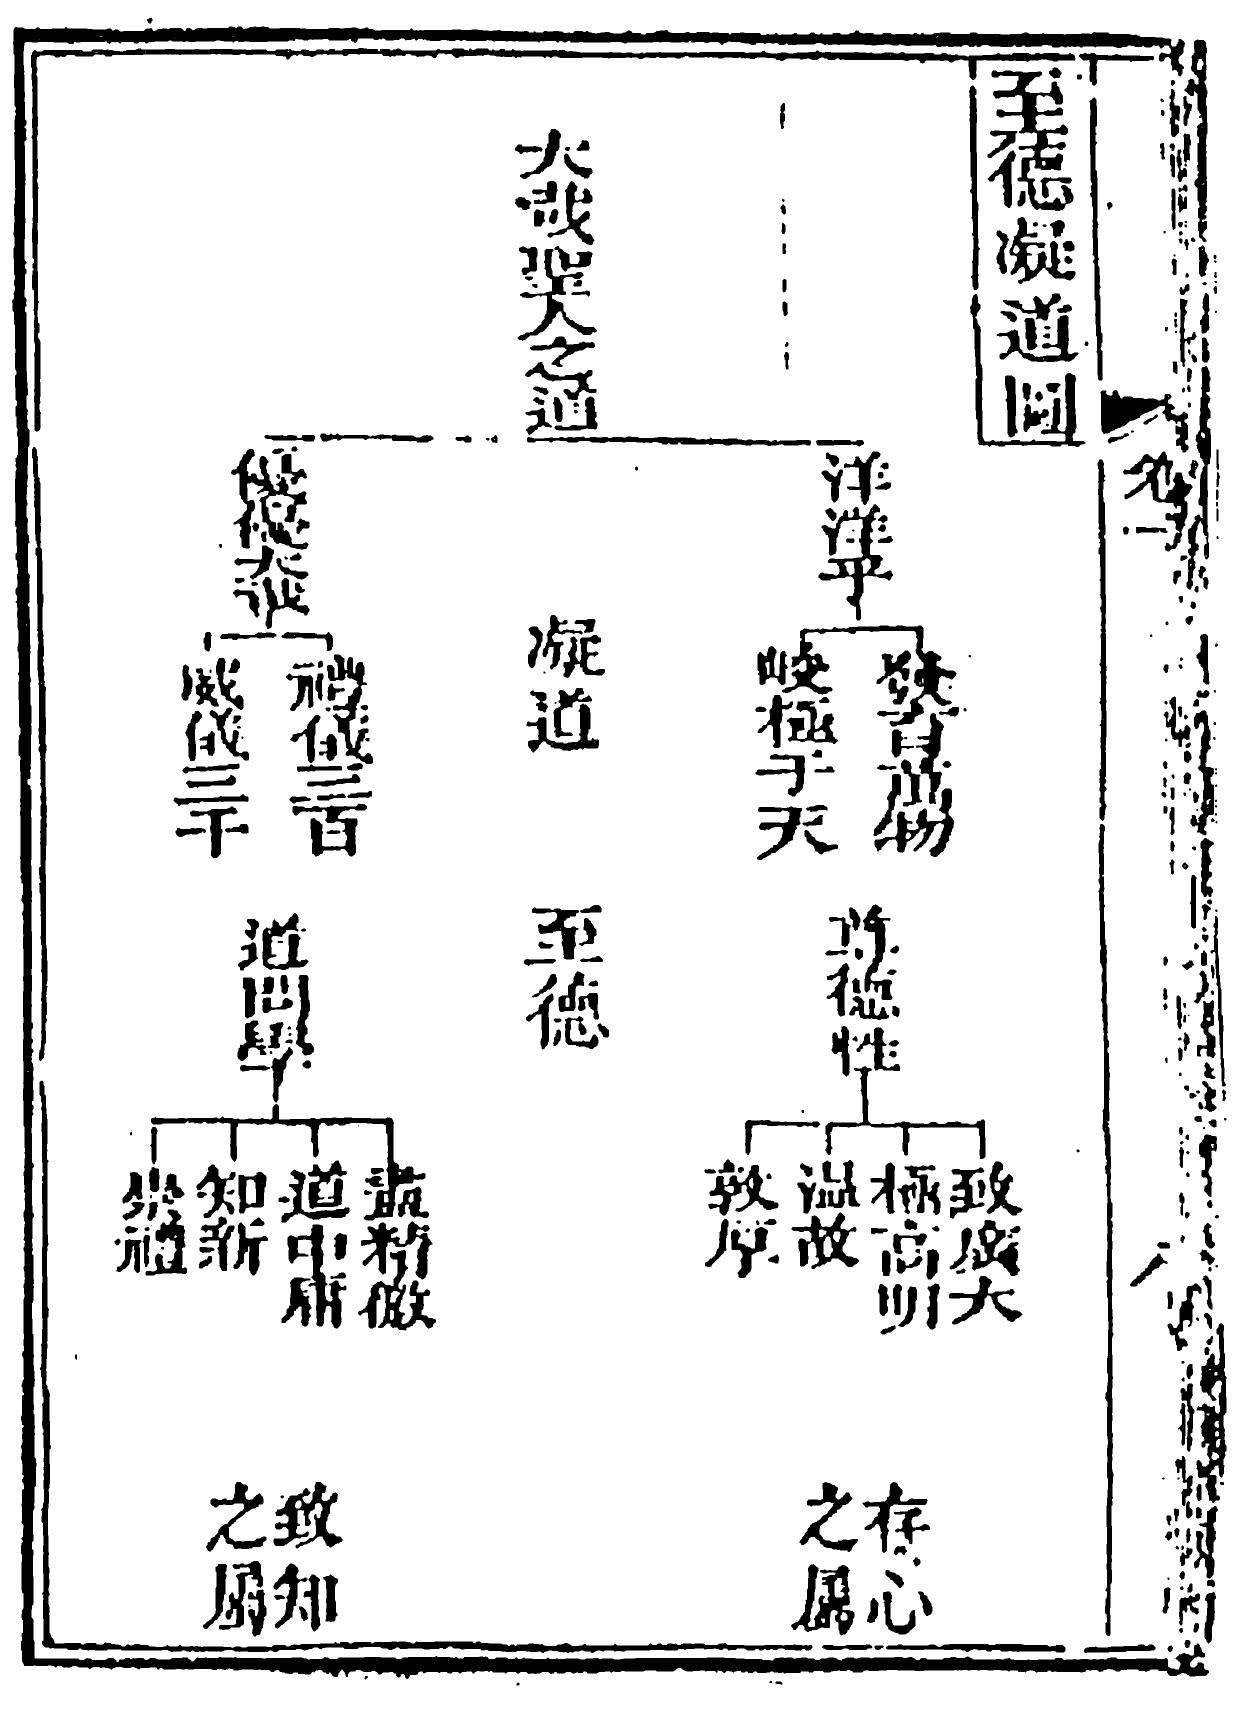 至德凝道圖
大哉聖人之道
洋洋乎
發育萬物
峻極于天
優優大哉
禮儀三百
威儀三千
凝道
至德
尊德性
致廣大
極高明
溫故
敦厚
道問學
盡精微
道中庸
知新
崇禮
存心之屬
致知之屬